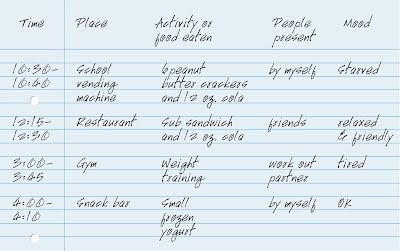 Time Place Activity or People Mood
food eaten present
10:30- School 6 peanut by myself Starved
10:40 vending butter crackers
machine and 12 oz. cola
12:15- Restaurant Sub sandwich friends relaxed
12:30 and 12 oz. cola & friendly
3:00- Gym Weight work out tired
3:45 training partner
4:00- Snack bar Small by myself OK
4:10 frozen
yogurt